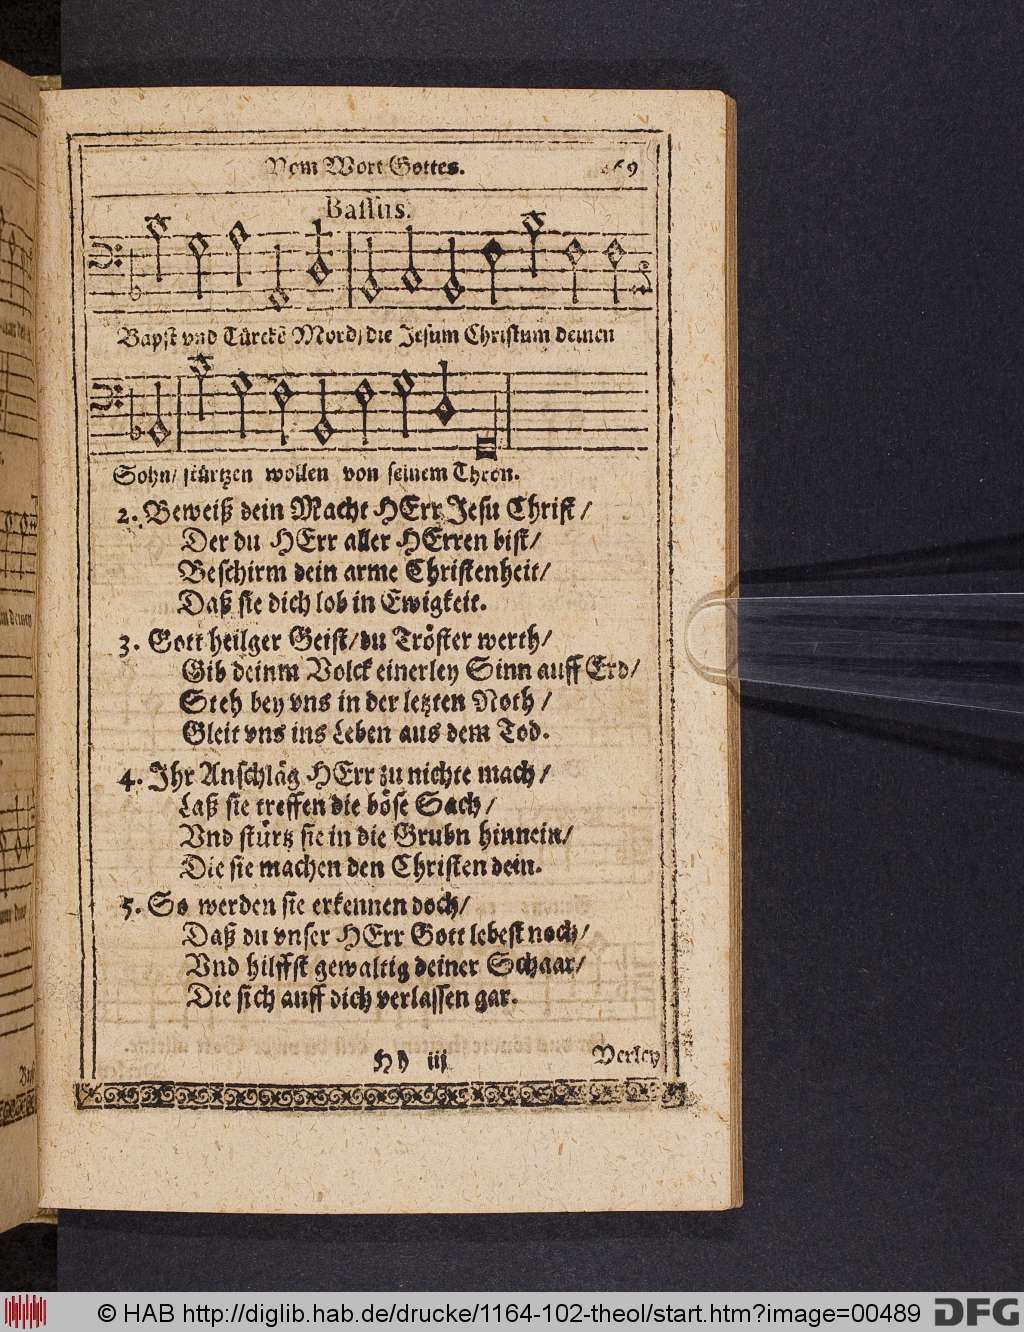 Vom Wort Gottes. 469
Bassus.
Bapst vnd Türckē Mord/ die Jesum Christum deinen
Sohn/ stürtzen wollen von seinem Thron.
2. Beweiß dein Macht HErr Jesu Christ /
Der du HErr aller HErren bist/
Beschirm dein arme Christenheit/
Daß sie dich lob in Ewigkeit.
3. Gott heilger Geist/ du Tröster werth/
Gib deinm Volck einerley Sinn auff Erd/
Steh bey vns in der letzten Noth /
Gleit vns ins Leben aus dem Tod.
4. Jhr Anschläg HErr zu nichte mach/
Laß sie treffen die böse Sach/
Vnd stürtz sie in die Grubn hinnein/
Die sie machen den Christen dein.
5. So werden sie erkennen doch/
Daß du vnser HErr Gott lebest noch/
Vnd hilffst gewaltig deiner Schaar/
Die sich auff dich verlassen gar.
Hh iij Verley
© HAB http://diglib.hab.de/drucke/1164-102-theol/start.htm?image=00489 DFG